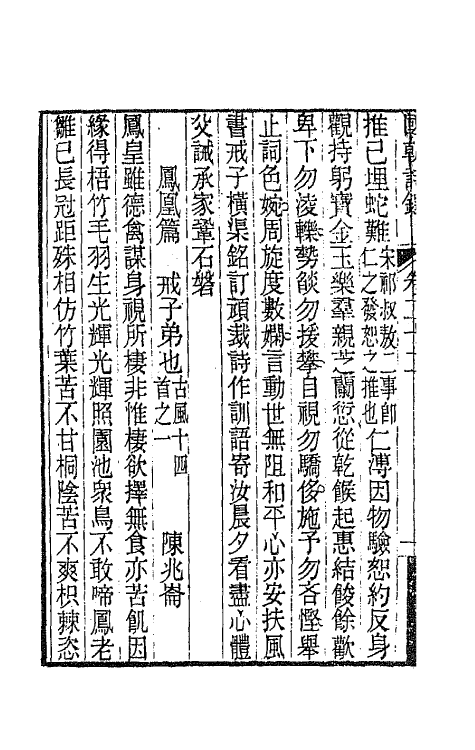 推己埋蛇難宋祁叔敖二事卽仁之發恕之推也仁溥因物驗恕約反身
觀持躬寶金玉樂羣親芝蘭愆從乾餱起惠結餕餘歡
卑下勿淩轢勢燄勿援攀自視勿驕侈施予勿吝慳舉
止詞色婉周旋度數嫻言動世無阻和平心亦安扶風
書戒子橫渠銘訂頑裁詩作訓語寄汝晨夕看盡心體
父誡承家鞏石磐
鳳凰篇 戒子弟也古風十四首之一 陳兆崙
鳳皇雖德禽謀身視所棲非惟棲欲擇無食亦苦飢因
緣得梧竹毛羽生光輝光輝照園池衆鳥不敢啼鳳老
雛已長冠距姝相仿竹葉苦不甘桐陰苦不爽枳棘恣